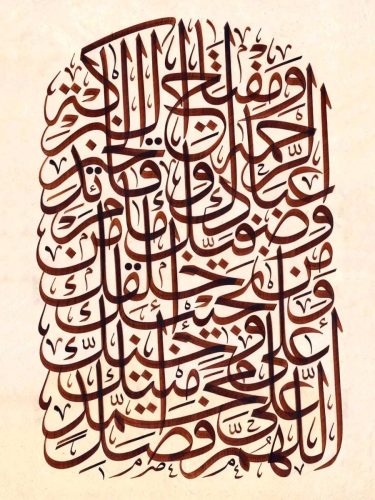 اللهم فصل على محمد
أمينك على وحيك
ونجيبك من خلقك
وصفيك من عبادك
إمام الرحمة وقائد الخير
ومفتاح البركة